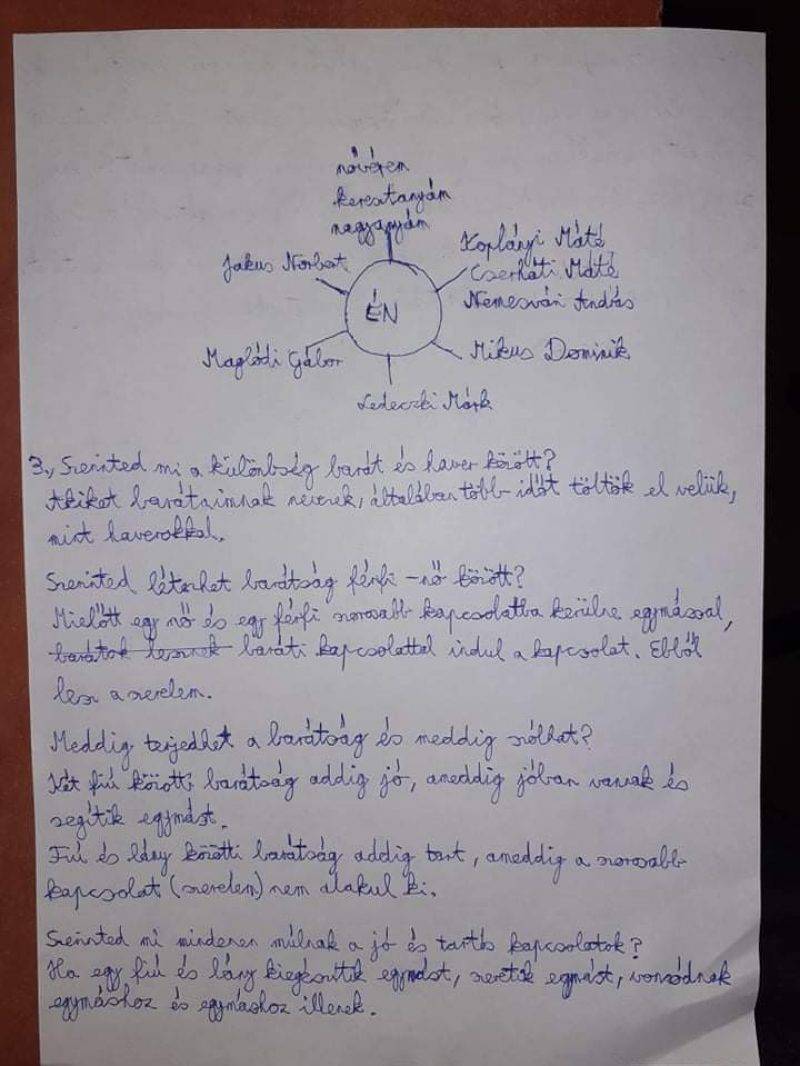 nővérem
keresztanyám
nagyanyám
Jakus Norbert
Koplányi Máté
Cserháti Máté
Nemesvári András
ÉN
Maglódi Gábor
Mikus Dominik
Ledeczki Márk
3., Szerinted mi a különbség barát és haver között?
Akiket barátaimnak nevezek, általában több időt töltök el velük,
mint haverokkal.
Szerinted létezhet barátság férfi - nő között?
Mielőtt egy nő és egy férfi szorosabb kapcsolatba kerülne egymással,
barátok lesznek baráti kapcsolattal indul a kapcsolat. Ebből
lesz a szerelem.
Meddig terjedhet a barátság és meddig szólhat?
Két fiú közötti barátság addig jó, ameddig jóban vannak és
segítik egymást.
Fiú és lány közötti barátság addig tart, ameddig a szorosabb
kapcsolat (szerelem) nem alakul ki.
Szerinted mi mindenen múlnak a jó és tartós kapcsolatok?
Ha egy fiú és lány kiegészítik egymást, szeretik egymást, vonzódnak
egymáshoz és egymáshoz illenek.